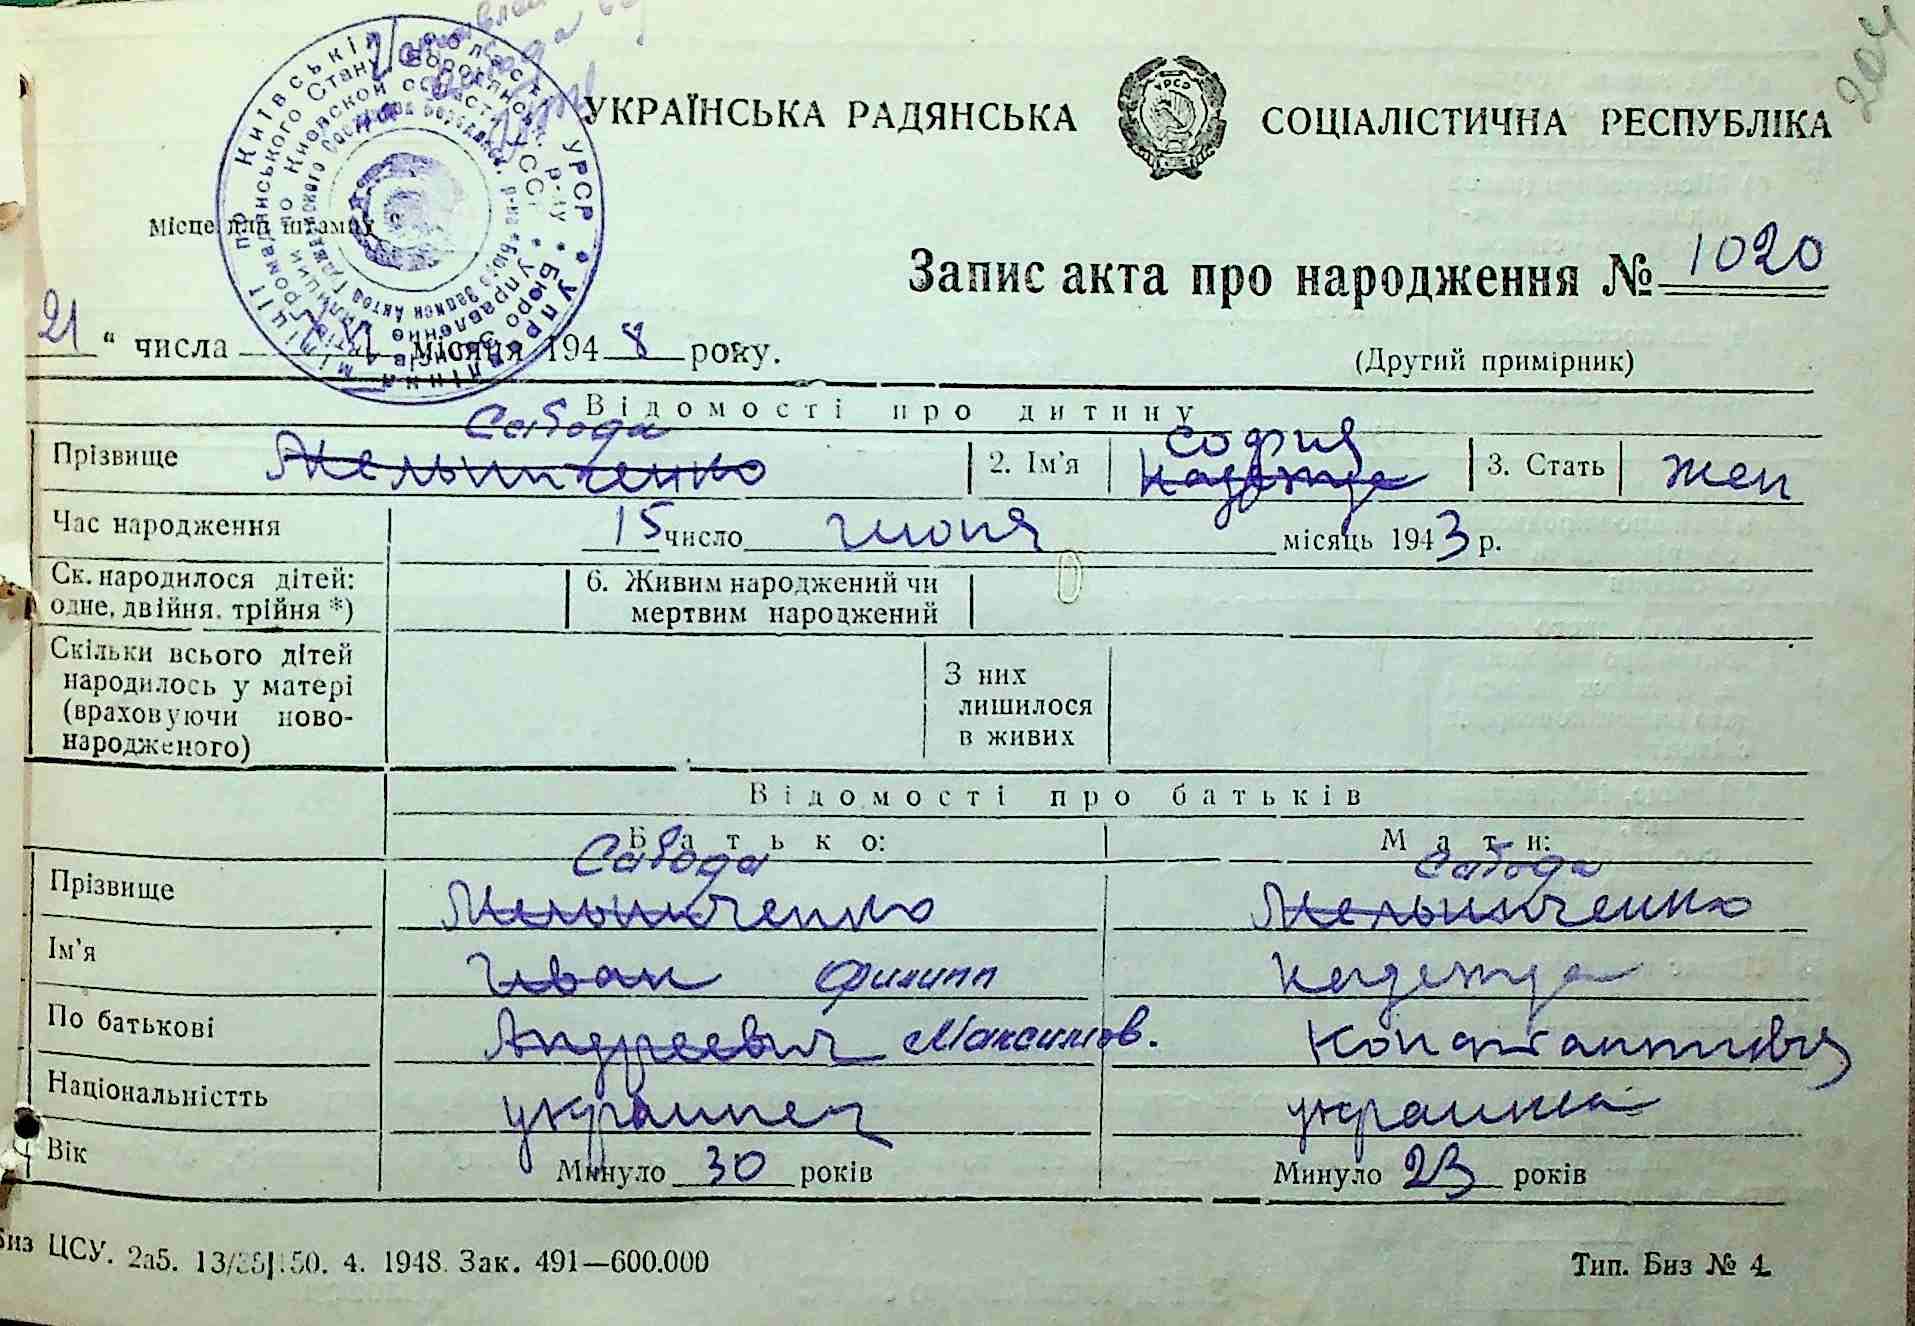 204
УКРАЇНСЬКА РАДЯНСЬКА СОЦІАЛІСТИЧНА РЕСПУБЛІКА
Місце для штампу
Запис акта про народження № 1020
21 " числа місяця 1948 року.
(Другий примірник)
Відомості про дитину
Сабода София
Прізвище Мельниченко 2. Ім'я Надежда 3. Стать жен
Час народження 15 число июня місяць 1943 р.
Ск. народилося дітей: одне, двійня, трійня *) 6. Живим народжений чи мертвим народжений
Скільки всього дітей народилось у матері (враховуючи ново-народженого) З них лишилося в живих
Відомості про батьків
Батько: Мати:
Сабода Сабода
Прізвище Мельниченко Мельниченко
Ім'я Иван Филипп Надежда
По батькові Андреевич Максимов. Константиновна
Національністть украинец украинка
Вік Минуло 30 років Минуло 23 років
Биз ЦСУ. 2а5. 4. 1948. Зак. 491—600.000 Тип. Биз № 4.